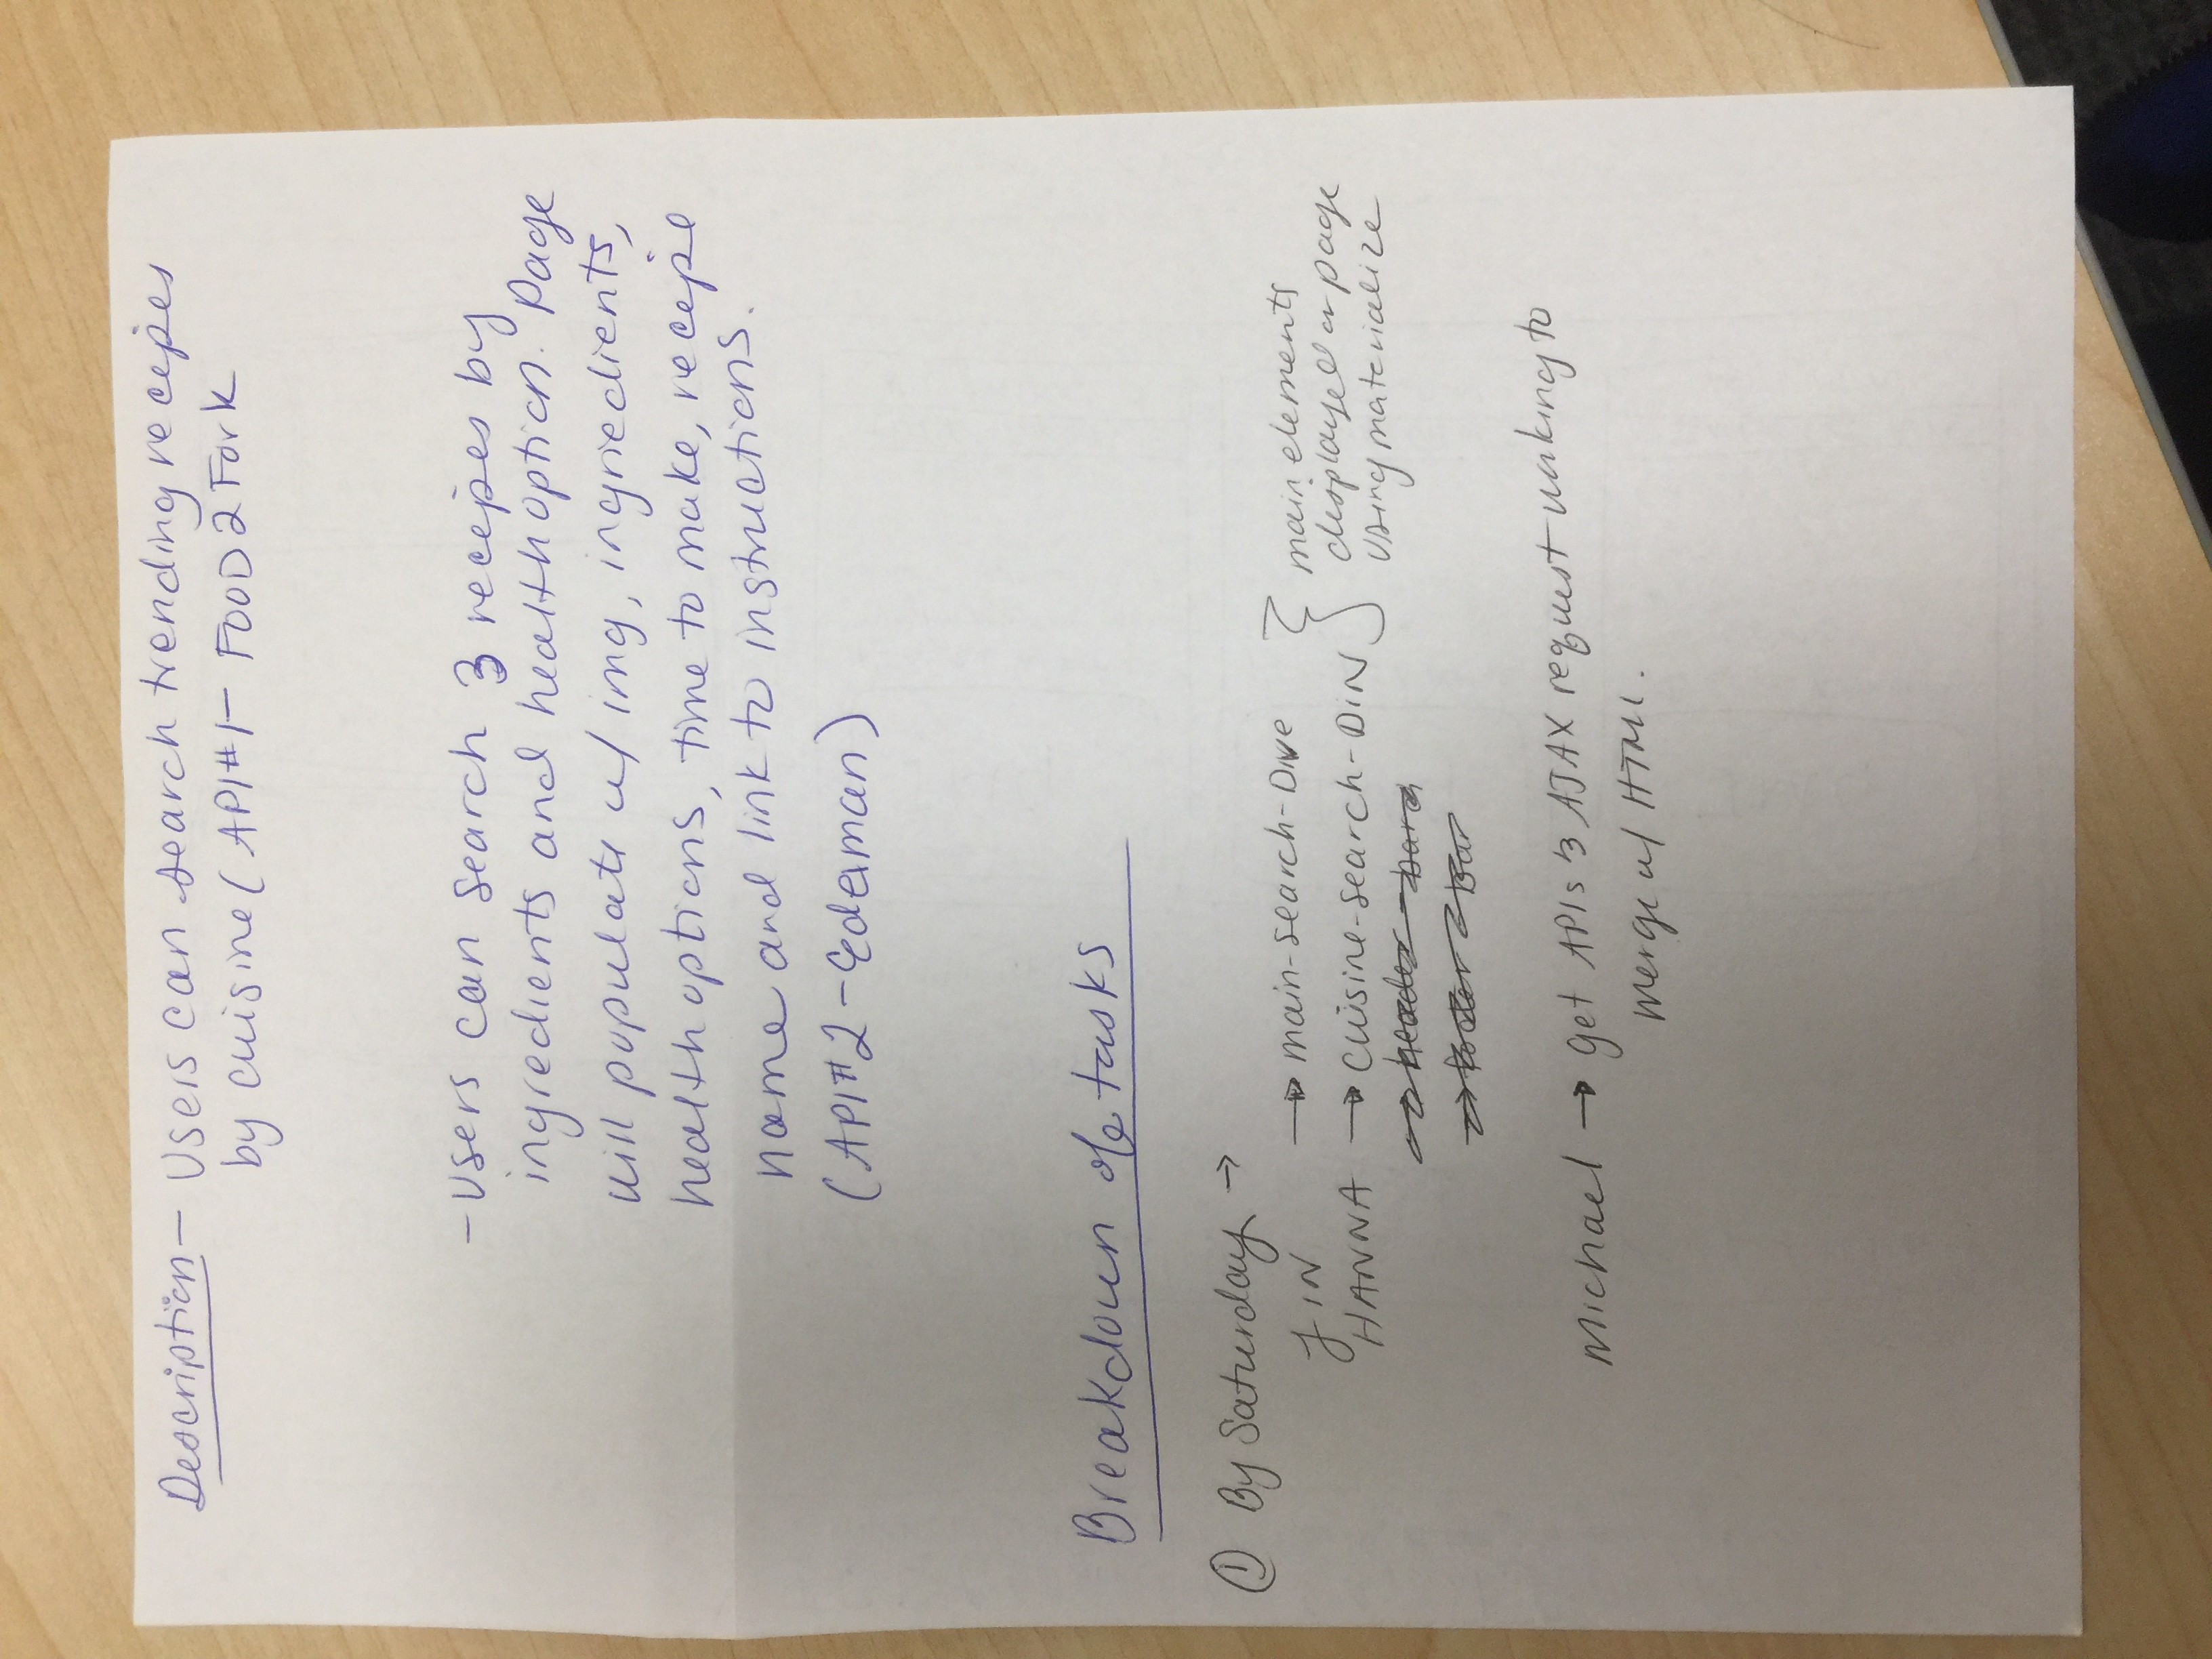 Description - Users can search trending recipes
by cuisine ( API #1- FOOD2Fork
- Users can search 3 recipes by
ingredients and health option. Page
will populate w/ img, ingriedients,
health options, time to make, recipe
name and link to instructions.
(API #2 - Edaman)
Breakdown of tasks
① By Saturday →
JIN → main-search-
HANNA → cuisine-search-
header bar
footer bar
main elements
displayed on page
using materialize
Michael → get APIs & AJAX request working to
merge w/ HTML.